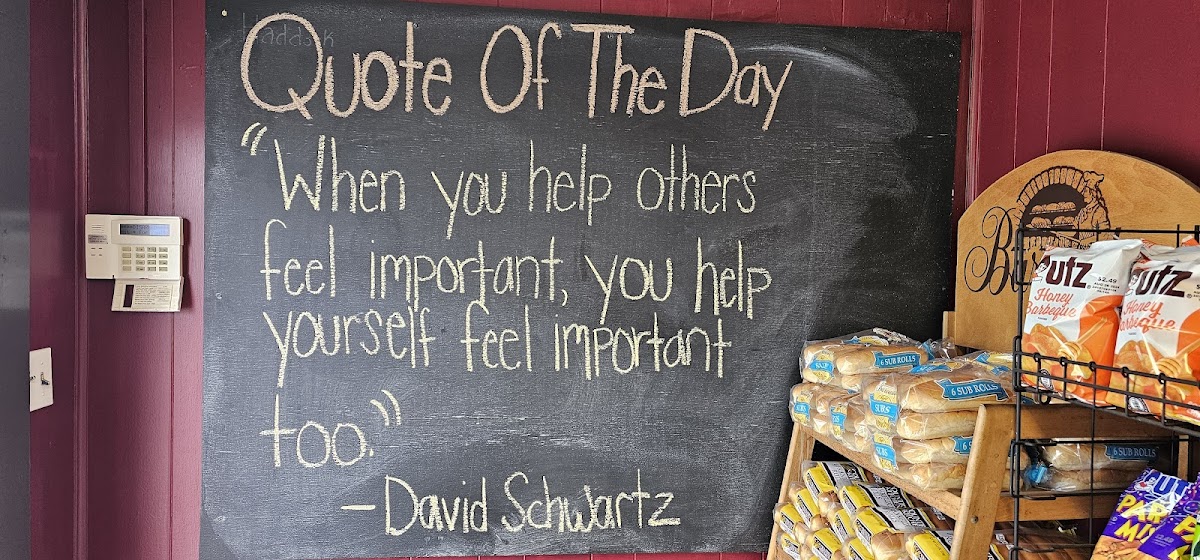 Quote Of The Day
"When you help others
feel important, you help
yourself feel important
too."
-David Schwartz
UTZ
$2.49
Honey
Barbeque
UTZ
Honey
Barbeque
6 SUB ROLLS
6 SUB ROLLS
SUBS
SUBS
6 SUB ROLLS